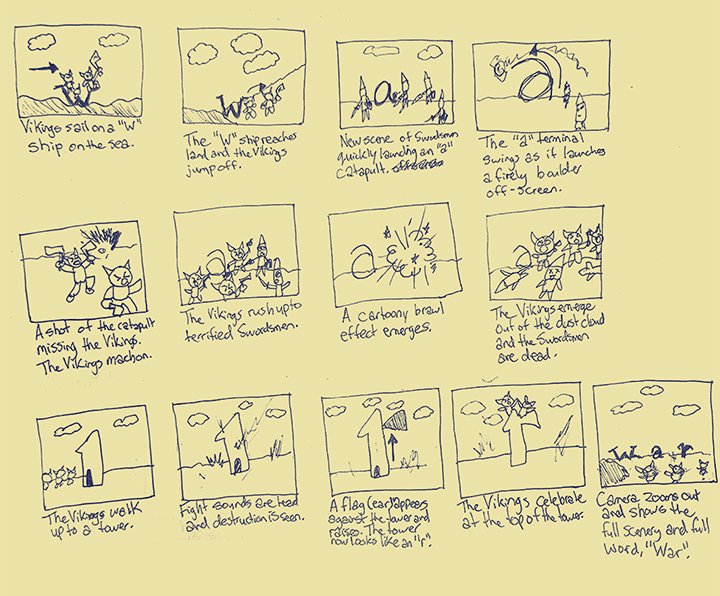 W
Vikings sail on a "W"
ship on the sea.
W
The "W" ship reaches
land and the Vikings
jump off.
a
New scene of Swordsmen
quickly launching an "a"
catapult.
a
The "a" terminal
swings as if launches
a firely boulder
off-screen.
A shot of the catapult
missing the Vikings.
The Vikings mach on.
The Vikings rush up to
terrified Swordsmen.
a
A cartoony brawl
effect emerges.
The Vikings emerge
out of the dust cloud
and the Swordsmen
are dead.
The Vikings walk
up to a tower.
Fight sounds are head
and destruction is seen.
A flag (ear) appears
against the tower and
raises. The tower
now looks like an "r".
The Vikings celebrate
at the top of the tower.
w a r
Camera zooms out
and shows the
full scenery and full
word, "War".